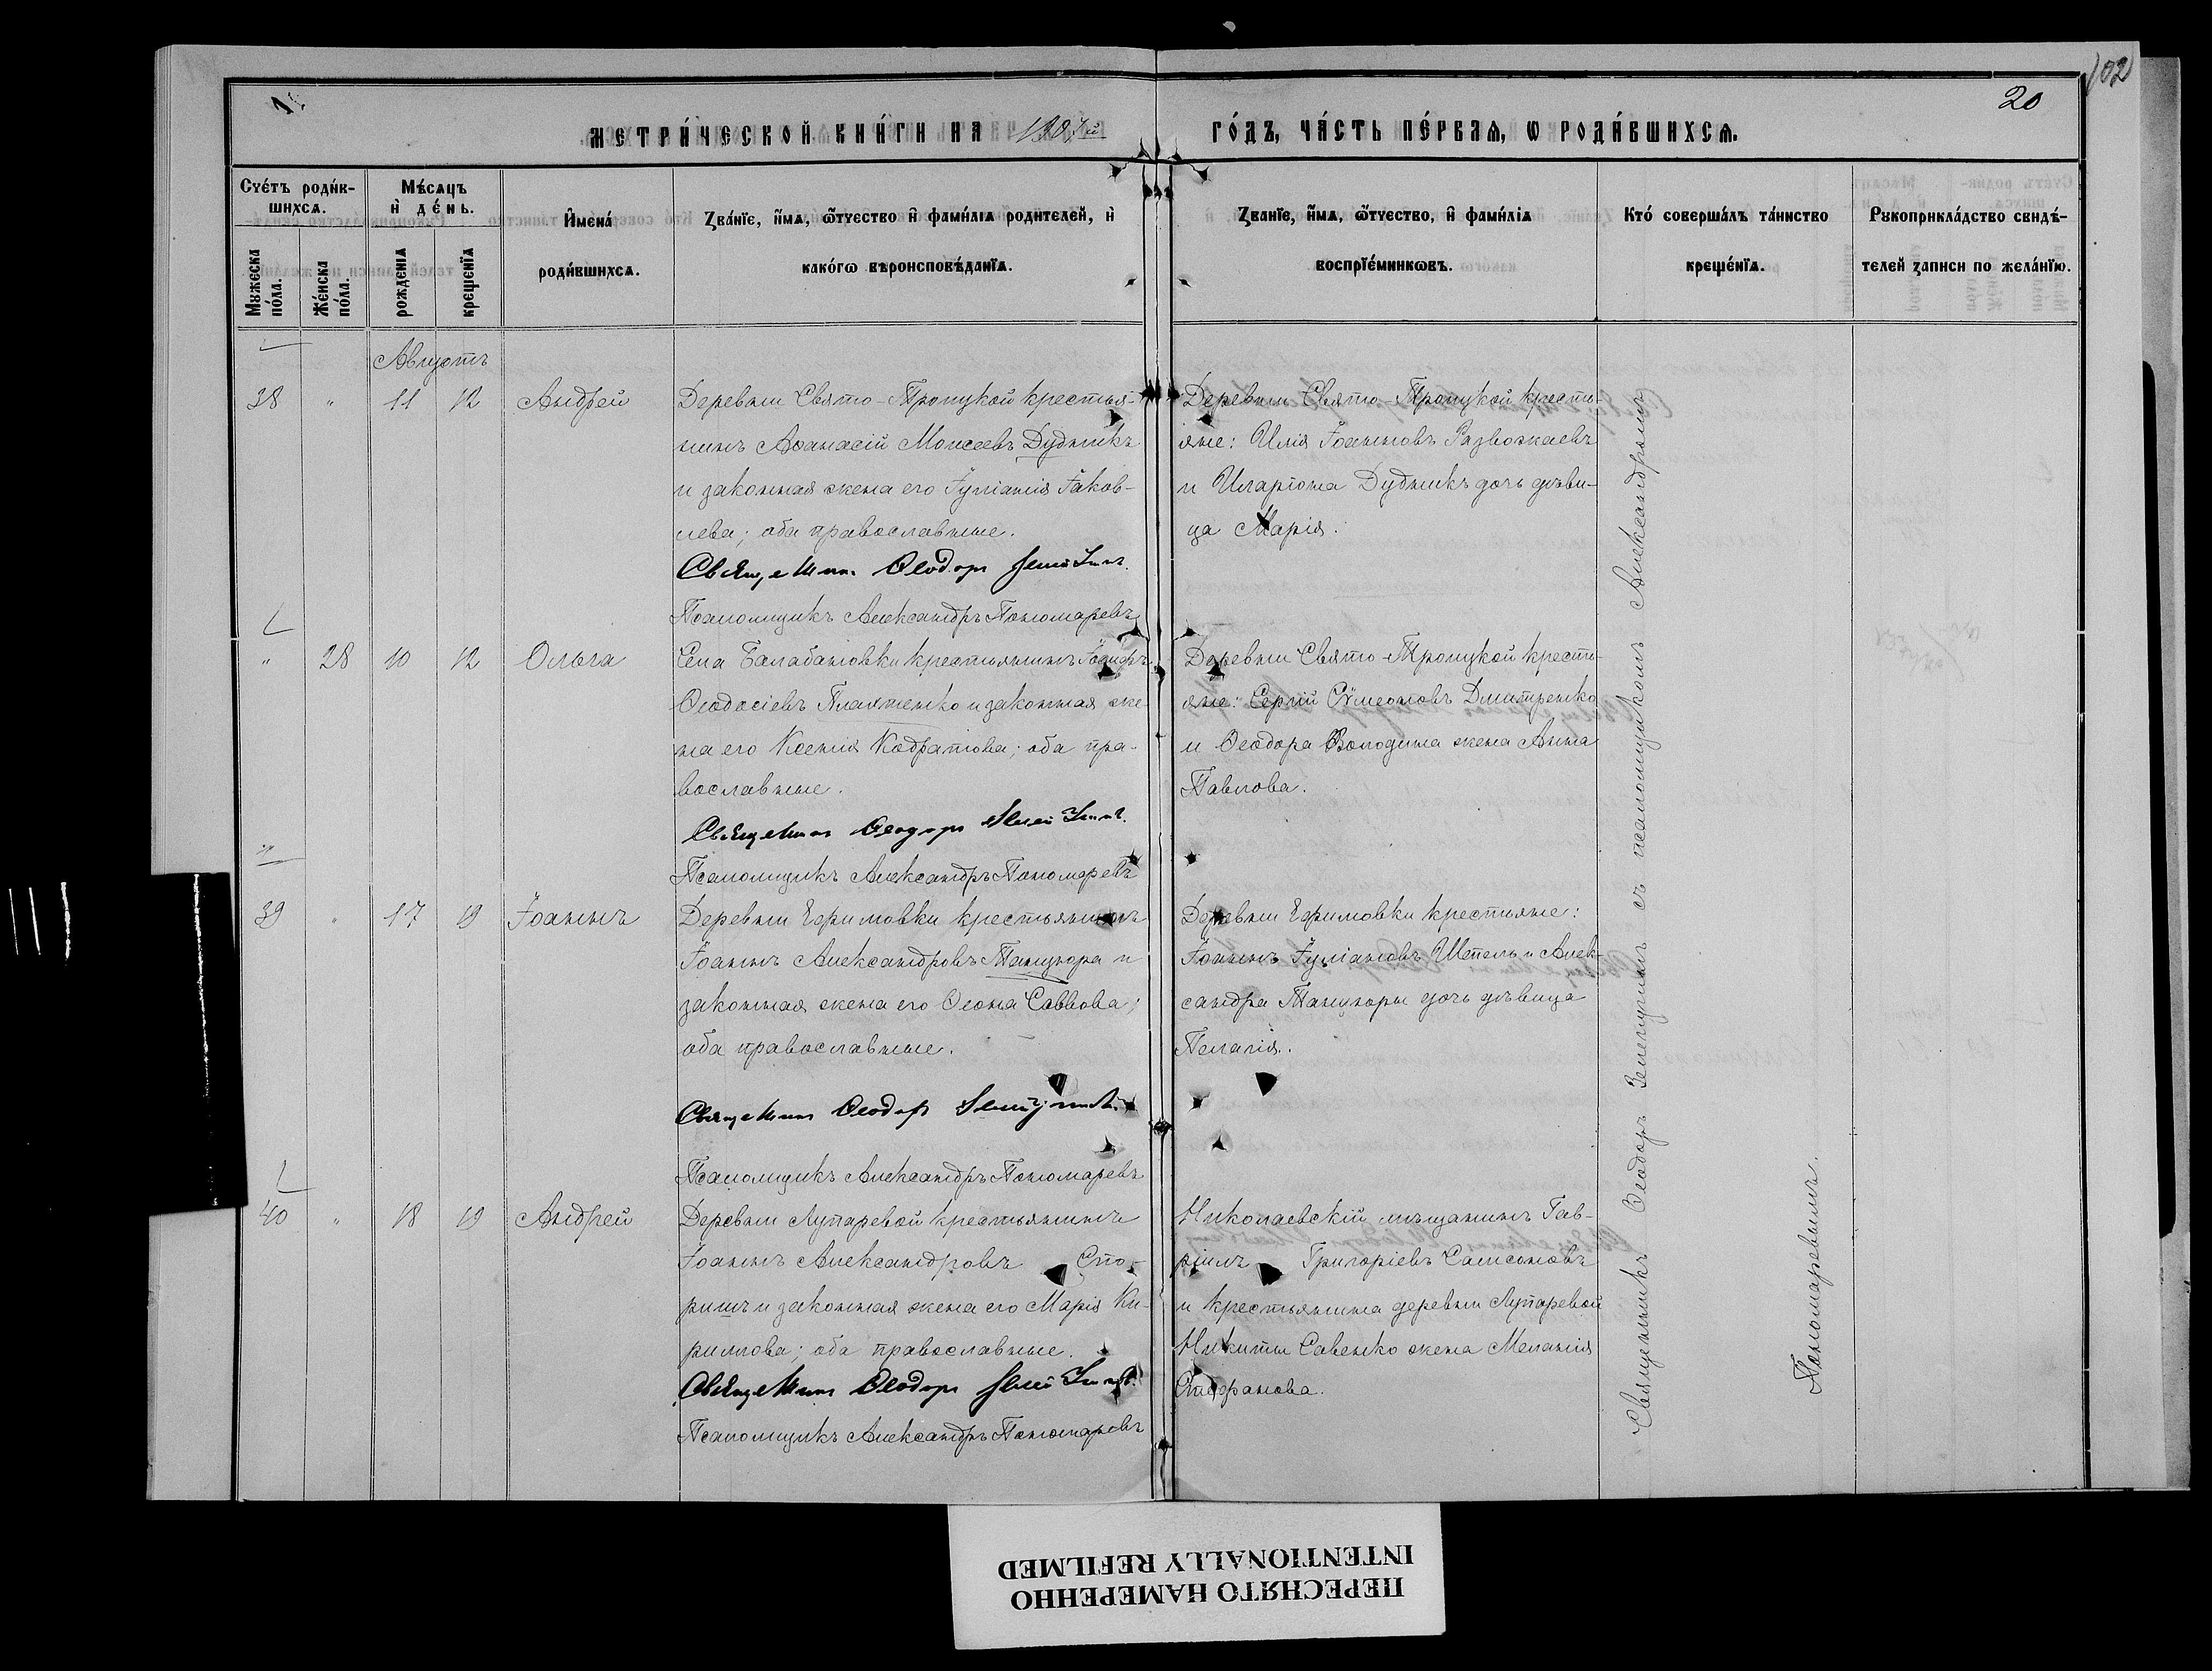 102
20
МЕТРИ́ЧЕСКОЙ КНИ́ГИ НА 1887й
ГО́ДЪ, ЧА́СТЬ ПЕ́РВАѦ, Ѡ РОДИ́ВШИХСѦ.
Счéтъ роди́в-
шихсѧ.
Мужеска по́ла.
Же́нска по́ла.
Мѣ́сѧцъ
и҆ де́нь.
рожденїѧ
крещенїѧ
И҆мена́
роди́вшихсѧ.
Зва́нїе, и҆́мѧ, ѻ҆́тчество и҆ фами́лїѧ родителей, и҆
како́гѡ вѣроисповѣ́данїѧ.
Зва́нїе, и҆́мѧ, ѻ҆́тчество, и҆ фами́лїѧ
воспрїе́мниковъ.
Кто́ соверша́лъ та́инство
креще́нїѧ.
Рукоприкла́дство свидѣ́-
телей записи по жела́нїю.
Августъ
38 " 11 12 Андрей
Деревни Свято-Троицкой крестья-
нинъ Аѳанасій Моисеевъ Дудникъ
и законная жена его Іуліанія Іаков-
лева; оба православные.
Священникъ Ѳеодоръ
Псаломщикъ Александръ Пономаревъ
Деревни Свято-Троицкой кресть-
яне: Илія Іоанновъ Развожаевъ
и Иларіона Дудникъ дочь дѣви-
ца Марія.
" 28 10 12 Ольга
Села Балабановки крестьянинъ
Ѳеодосіевъ Плахтенко и законная же-
на его Ксенія Кодратова; оба пра-
вославные.
Священникъ Ѳеодоръ
Псаломщикъ Александръ Пономаревъ
Деревни Свято-Троицкой кресть-
яне: Сергій Сѵмеоновъ Дмитренко
и Ѳеодора Володина жена Анна
Павлова.
39 " 17 19 Іоаннъ
Деревни Ефимовки крестьянинъ
Іоаннъ Александровъ Танцюра и
законная жена его Ѳеона Саввова;
оба православные.
Священникъ Ѳеодоръ
Псаломщикъ Александръ Пономаревъ
Деревни Ефимовки крестьяне:
Іоаннъ Іуліановъ Шепель и Алек-
сандра Танцюры дочь дѣвица
Пелагія.
40 " 18 19 Андрей
Деревни Лупаревой крестьянинъ
Іоаннъ Александровъ Спо-
ришъ и законная жена его Марія Ки-
риллова; оба православные.
Священникъ Ѳеодоръ
Псаломщикъ Александръ Пономаревъ
Николаевскій мѣщанинъ Гав-
ріилъ Григоріевъ Самсоновъ
и крестьянина деревни Лупаревой
Никиты Савенко жена Меланія
Стефанова.
Священникъ Ѳеодоръ съ псаломщикомъ Александромъ
Пономаревымъ.
ПЕРЕСНЯТО НАМЕРЕННО
INTENTIONALLY REFILMED